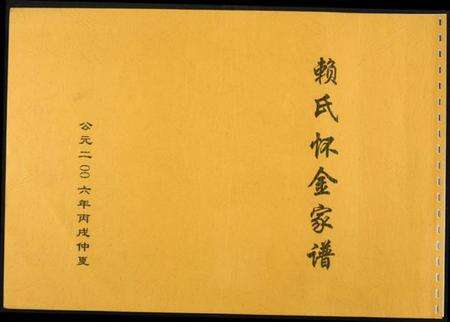 赖氏怀金家谱
公元二〇〇六年丙戌仲夏